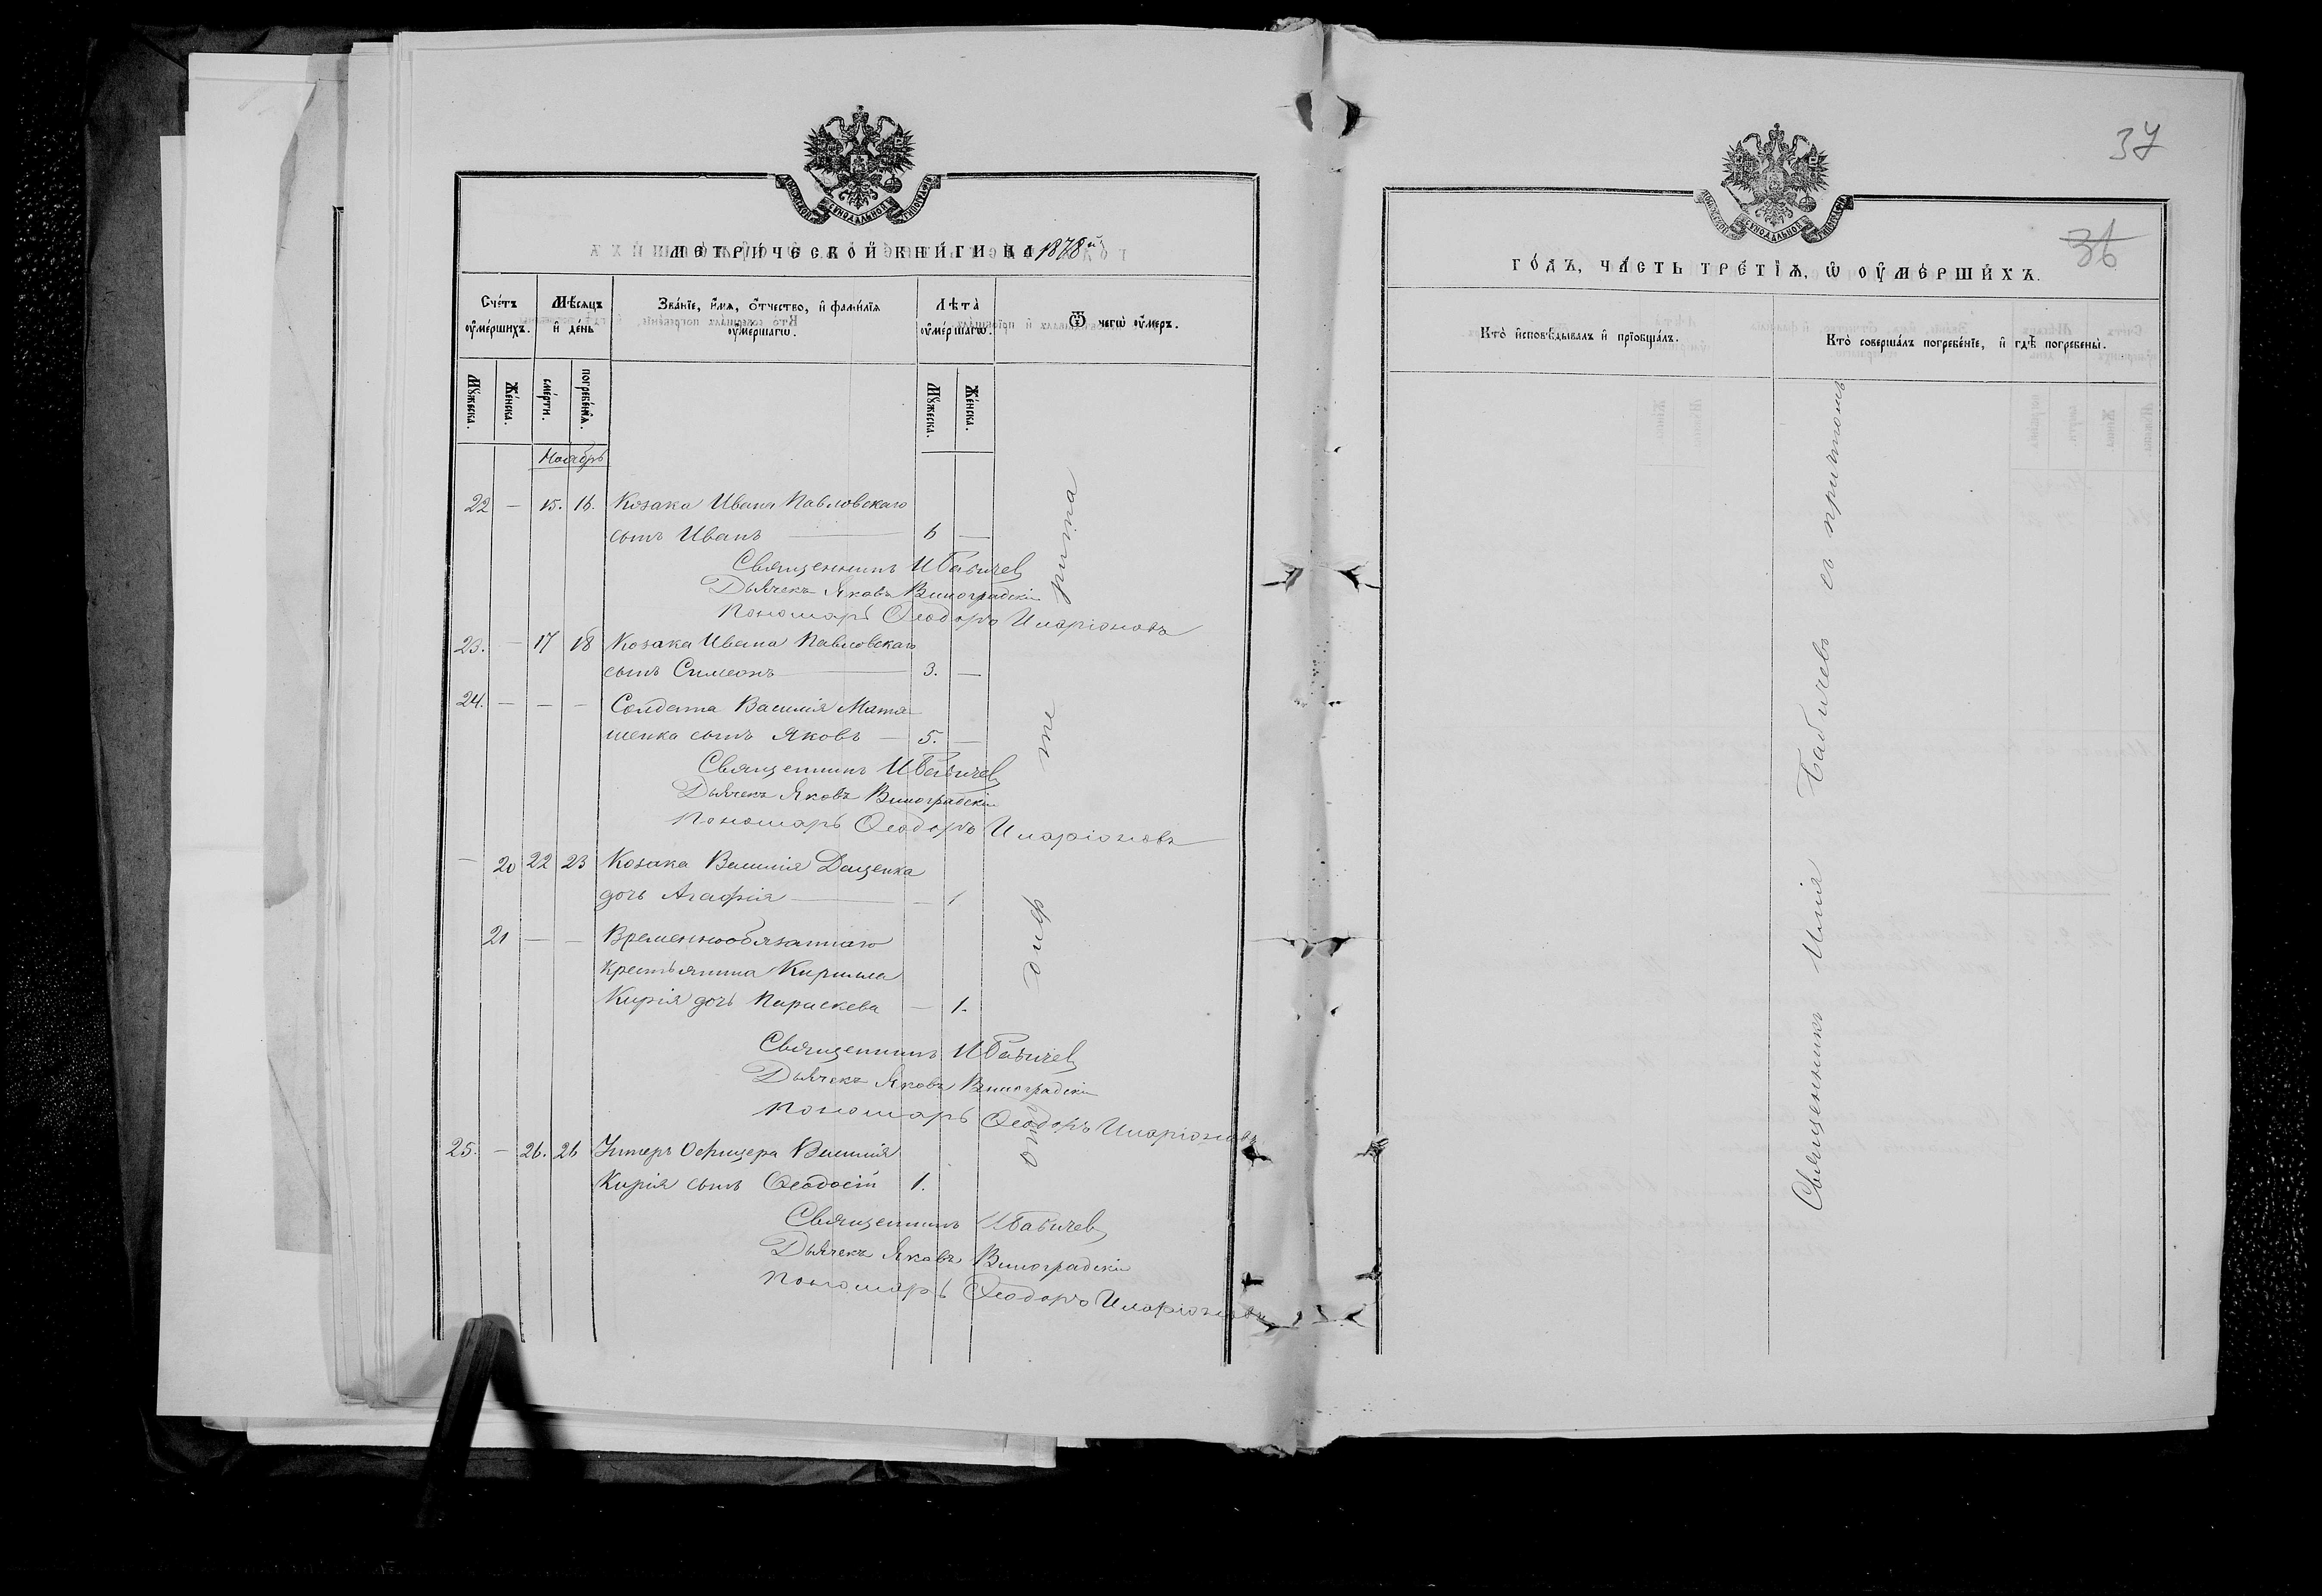 МЕТРИЧЕСКОЙ КНИГИ НА 1878й
Счетъ оумершихъ.
Мѣсяцъ и день
Званіе, имя, отчество, и фамилія оумершагѡ.
Лѣта оумершагѡ.
Ѿ чегѡ оумеръ.
Мужеска.
Женска.
смерти.
погребенія.
Мужеска.
Женска.
Ноябрь
22 — 15. 16. Козака Ивана Павловскаго
сынъ Иванъ — 6 —
Священникъ И Бабичев
Дьячекъ Яковъ Виноградскій
Пономарь Ѳеодоръ Иларіоновъ
23. — 17 18 Козака Ивана Павловскаго
сынъ Симеонъ — 3. —
24. — — — Солдата Василія Матя
шенка сынъ Яковъ — 5. —
Священникъ И Бабичев
Дьячекъ Яковъ Виноградскій
Пономарь Ѳеодоръ Иларіоновъ
— 20 22 23 Козака Василія Даценка
дочь Агафія — — 1
21 — — Временнообязаннаго
крестьянина Кирилла
Кирія дочь Параскева — 1.
Священникъ И Бабичев
Дьячекъ Яковъ Виноградскій
Пономарь Ѳеодоръ Иларіоновъ
25. — 26. 26 Унтеръ Офицера Василія
Кирія сынъ Ѳеодосій 1.
Священникъ И Бабичев
Дьячекъ Яковъ Виноградскій
Пономарь Ѳеодоръ Иларіоновъ
отъ дифтерита
37
36
ГОДЪ, ЧАСТЬ ТРЕТІЯ, Ѡ ОУМЕРШИХЪ.
Кто исповѣдывалъ и пріобщалъ.
Кто совершалъ погребеніе, и гдѣ погребены.
Священникъ Илія Бабичевъ съ причтомъ